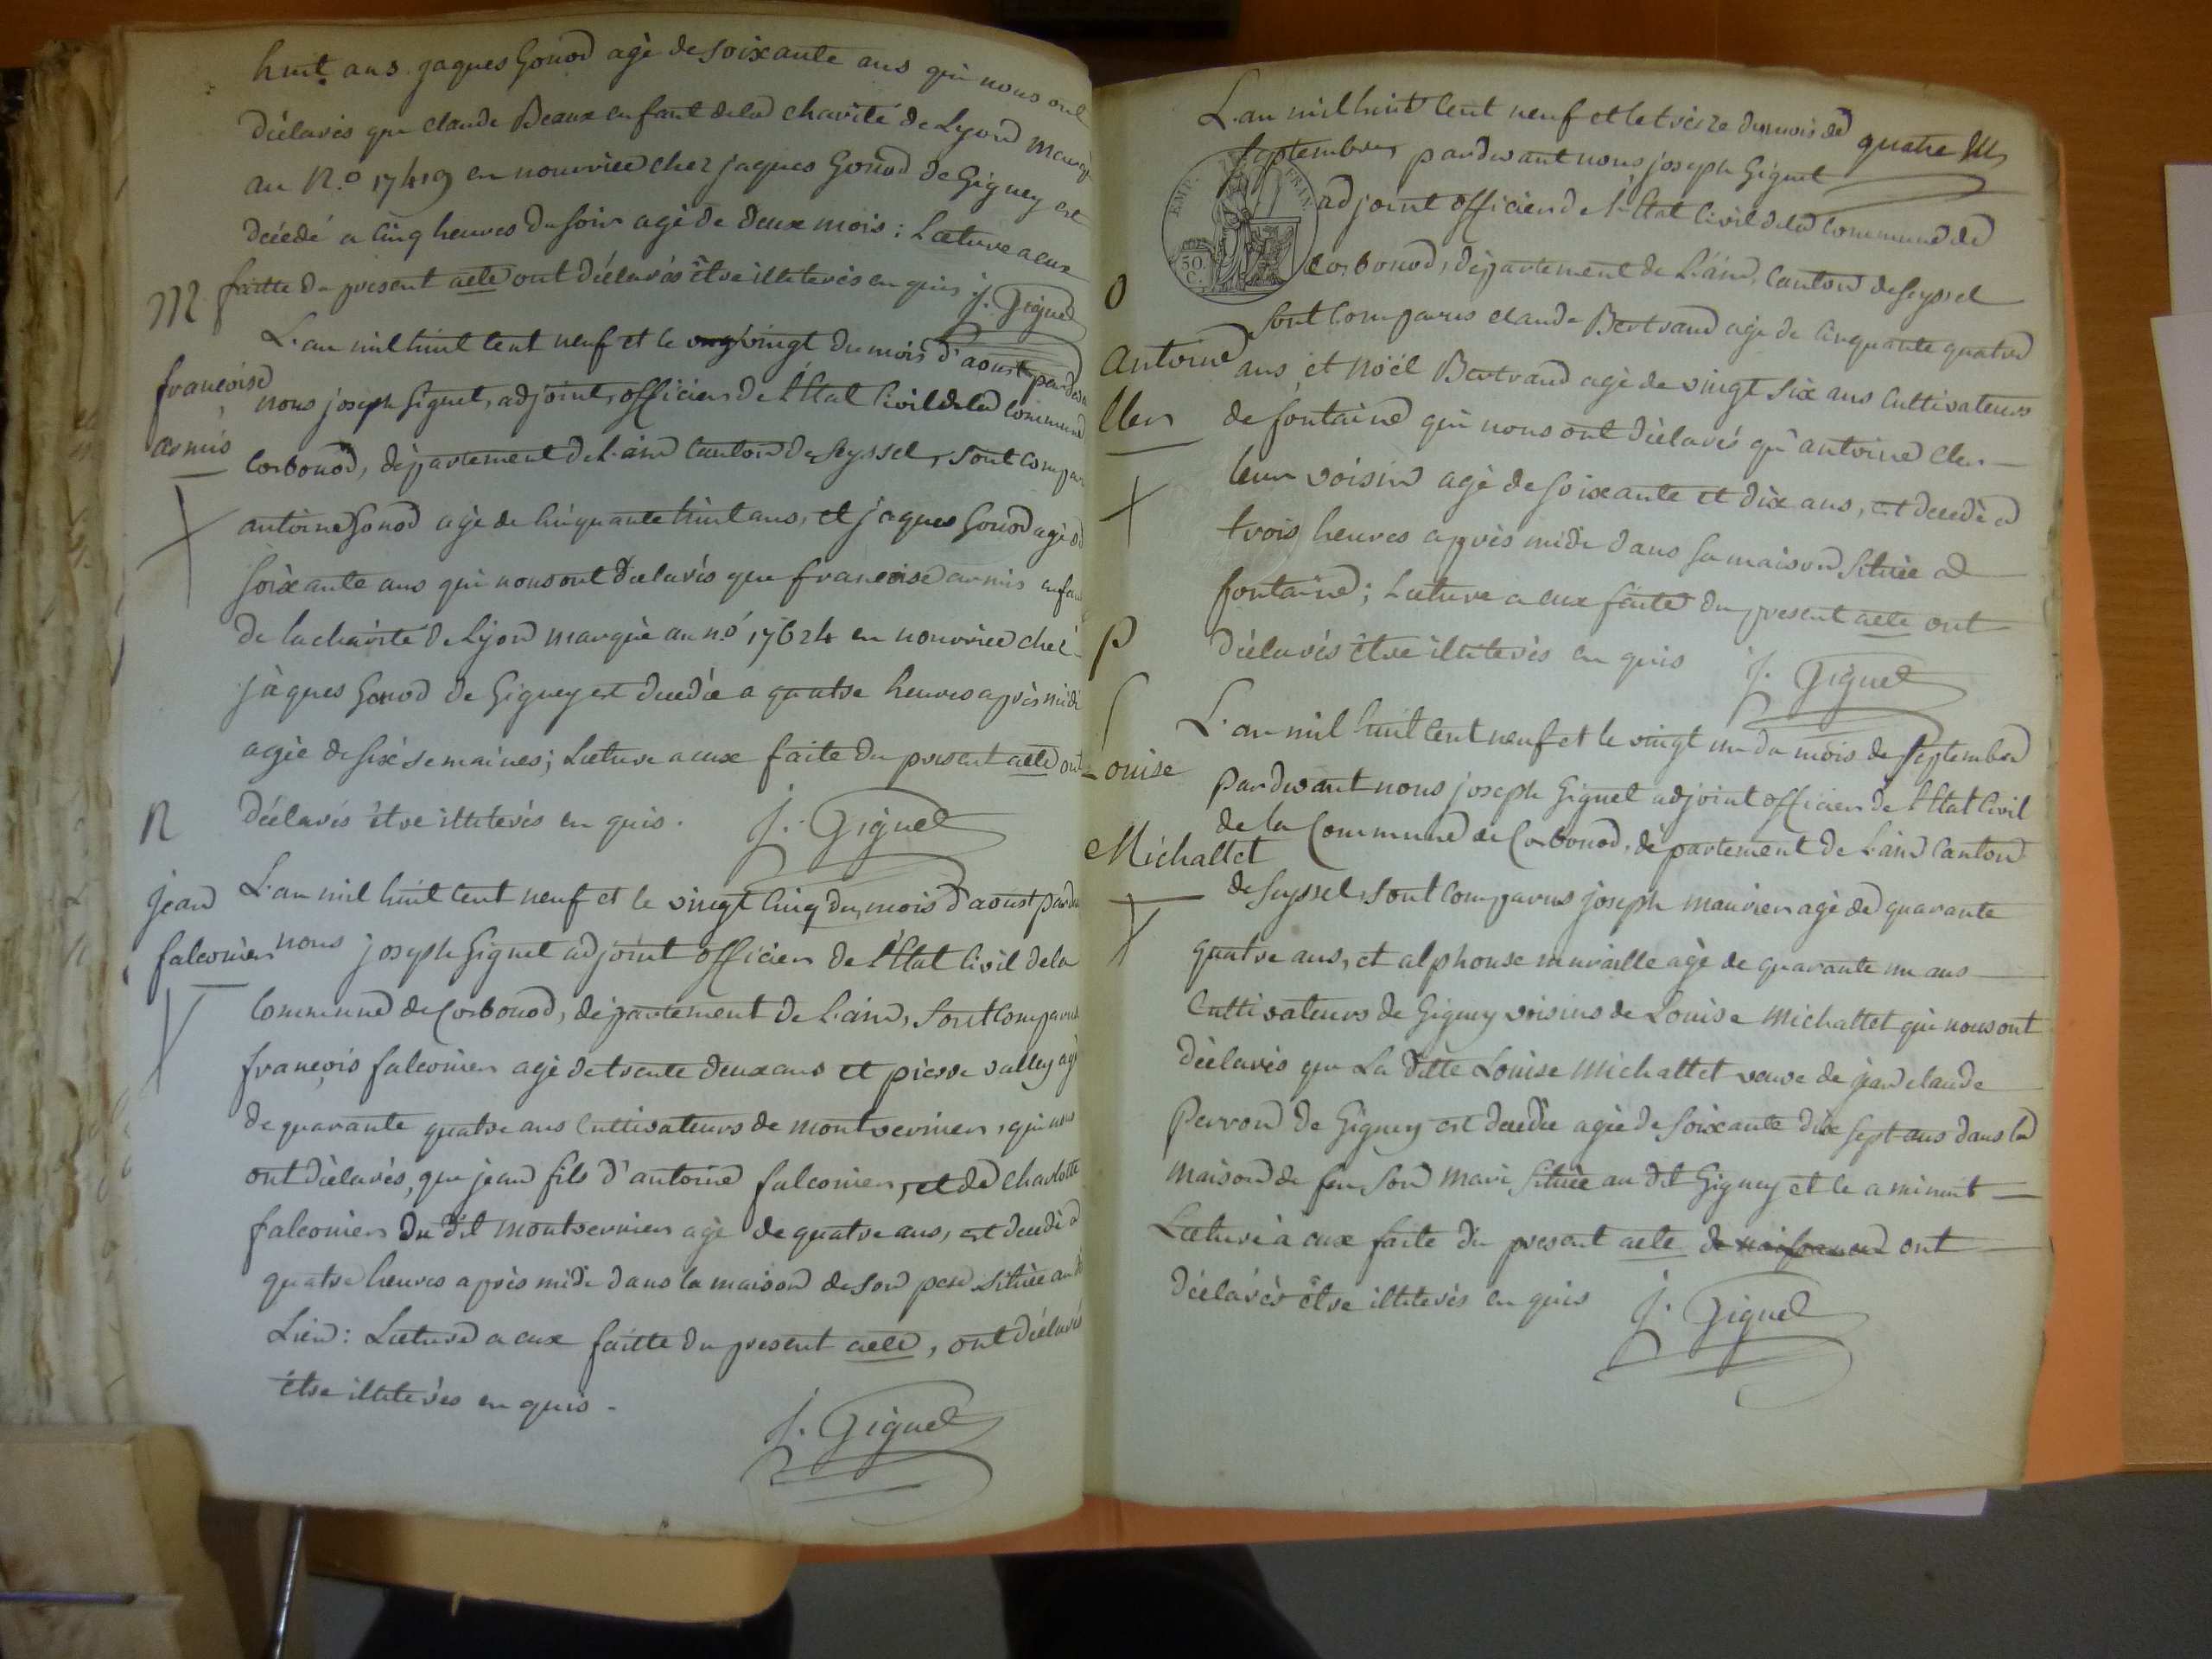 huit ans. jaques Gonod agé de soixante ans qui nous ont
déclarés que claude Beaux enfant de la charité de Lyon marqué
au N.o 17419 en nourrice chez jaques Gonod de Gigney est
décédé a cinq heures du soir agé de deux mois: Lecture a eux
faitte du present acte ont déclarés être illiterés enquis. J. Giguet
M
francoise
armis
L'an mil huit cent neuf et le vingt du mois d'aoust pardevant
nous joseph Giguet, adjoint, officier de l'Etat Civil de la Commune
Corbonod, département de L'ain Canton de Seyssel, sont compar
antoine Gonod agé de cinquante huit ans, et jaques Gonod agé de
soixante ans qui nous ont déclarés que francoise armis enfant
de la chairité de Lyon marquée au n.o 17624 en nourrice chéz
jàques Gonod de Gigney est décedée a quatre heures après midi
agée de six semaines; Lecture a eux faite du present acte ont
déclarés être illitérés en quis. J. Giguet
N
jean
falconier
L'an mil huit cent neuf et le vingt cinq du mois d'aoust pardev
nous joseph Giguet adjoint officier de l'Etat Civil de la
Commune de Corbonod, département de L'ain, sont comparus
françois falconier agé de trente deux ans et pierre valley agé
de quarante quatre ans cultivateurs de montvernier, qui nous
ont déclarés, que jean fils d'antoine falconier, et de charlotte
falconier du dit montvernier agé de quatre ans, est décédé a
quatre heures après midi dans la maison de son pere située au dit
Lieu: Lecture a eux faitte du present acte, ont déclarés
être illiterés en quis.
J. Giguet
L'an mil huit cent neuf et le treize du mois de quatre
septembre, pardevant nous joseph Giguet
EMP. FRAN.
50. C.
adjoint officier de l'Etat Civil de la commune de
Corbonod, département de L'ain, Canton de Seyssel
O
antoine
Cler
sont comparus claude Bertrand agé de cinquante quatre
ans, et Noël Bertrand agé de vingt six ans cultivateurs
de fontaine qui nous ont déclarés qu'antoine Cler
leur voisin agé de soixante et dix ans, est decedé a
trois heures après midi dans sa maison située a
fontaine; Lecture a eux faite du present acte ont
déclarés être illiterés en quis J. Giguet
P
Louise
Michallet
L'an mil huit cent neuf et le vingt un du mois de septembre
pardevant nous joseph Giguet adjoint officier de l'Etat Civil
de la Commune de Corbonod, département de L'ain Canton
de Seyssel, sont comparus joseph maurier agé de quarante
quatre ans, et alphonse muraille agé de quarante un ans
Cultivateurs de Gigney voisins de Louise Michallet qui nous ont
déclarés que La ditte Louise Michallet veuve de jean claude
Perron de Gigney est décédée agée de soixante dix sept ans dans la
maison de feu son mari située au dit Gigney et le a minuit
Lecture à eux faite du present acte de naissance ont
déclarés être illiterés en quis J. Giguet